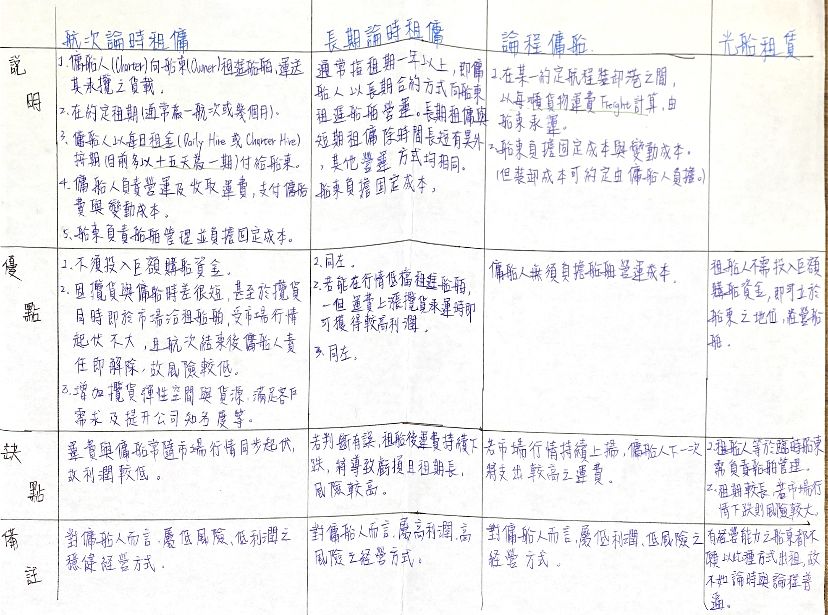 航次論時租傭
長期論時租傭
論程傭船
光船租賃
說明
1.傭船人(Charter)向船東(Owner)租進船舶,運送
其承攬之貨載。
2.在約定租期(通常為一航次或幾個月)。
3.傭船人以每日租金(Daily Hire 或 Charter Hire)
按期(目前多以十五天為一期)付給船東。
4.傭船人自負營運及收取運費,支付傭船
費與變動成本。
5.船東負責船舶管理並負擔固定成本。
通常指租期一年以上,即傭
船人以長期合約方式向船東
租進船舶營運。長期租傭與
短期租傭除時間長短有異外
,其他營運方式均相同。
船東負擔固定成本,
1.在某一約定航程裝卸港之間,
以每噸貨物運費Freight計算,由
船東承運。
2.船東負擔固定成本與變動成本。
(但裝卸成本可約定由傭船人負擔。)
優點
1.不須投入巨額購船資金。
2.因攬貨與傭船時差很短,甚至於攬貨
同時即於市場洽租船舶,受市場行情
起伏不大,且航次結束後傭船人責
任即解除,故風險較低。
3.增加攬貨彈性空間與貨源,滿足客戶
需求及提升公司知名度等。
1.同左。
2.若能在行情低檔租進船舶,
一但運費上漲攬貨承運時即
可獲得較高利潤。
3.同左。
傭船人無須負擔船舶營運成本。
租船人不需投入巨額
購船資金,即可立於
船東之地位,經營船
舶。
缺點
運費與傭船常隨市場行情同步起伏,
故利潤較低。
若判斷有誤,租船後運費持續下
跌,將導致虧損且租期長,
風險較高。
若市場行情持續上揚,傭船人下一次
將支出較高之運費。
1.租船人等於臨時船東
需負責船舶管理。
2.租期較長,若市場行
情下跌則風險較大。
備註
對傭船人而言,屬低風險、低利潤之
穩健經營方式。
對傭船人而言,屬高利潤、高
風險之經營方式。
對傭船人而言,屬低利潤、低風險之
經營方式。
有經營能力之船東都不
願以此種方式出租,故
不如論時與論程普
遍。